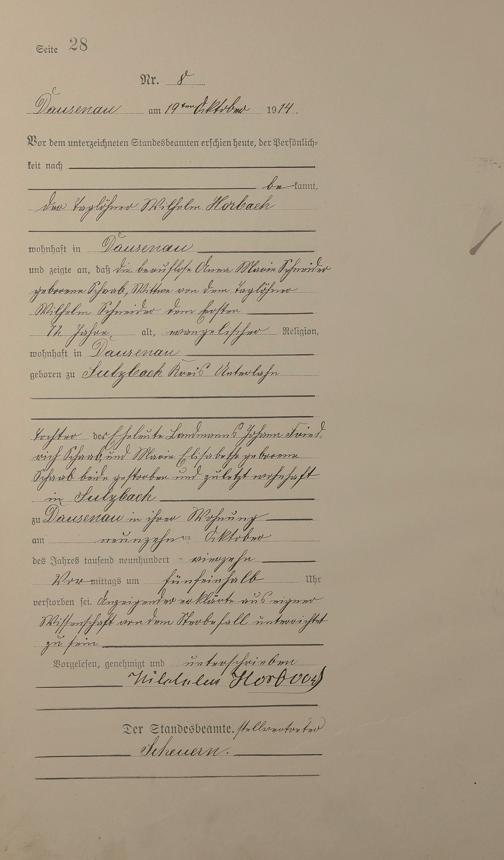 Seite 28
Nr. 8
Dausenau am 19ten Oktober 1914.
Vor dem unterzeichneten Standesbeamten erschien heute, der Persönlich-
keit nach
be kannt,
der Taglöhner Wilhelm Horbach
wohnhaft in Dausenau
und zeigte an, daß die berufslose Anna Marie Schneider
geborene Schaab, Witwe von dem Taglöhner
Wilhelm Schneider dem Ersten
72 Jahre alt, evangelischer Religion,
wohnhaft in Dausenau
geboren zu Sulzbach Kreis Unterlahn
Tochter der Eheleute Landmanns Johann Fried-
rich Schaab und Marie Elisabethe geborene
Schaab beide gestorben und zuletzt wohnhaft
in Sulzbach
zu Dausenau in ihrer Wohnung
am neunzehnten Oktober
des Jahres tausend neunhundert vierzehn
Vor mittags um fünfeinhalb Uhr
verstorben sei. Anzeigender erklärte aus eigner
Wissenschaft von dem Sterbefall unterrichtet
zu sein
Vorgelesen, genehmigt und unterschrieben
Wilhelm Horbach
Der Standesbeamte. stellvertreter
Scheuern.